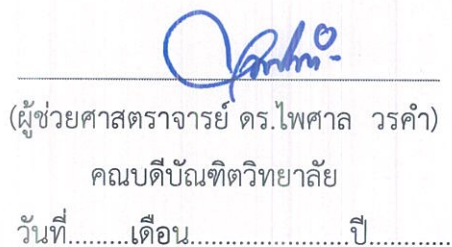 (ผู้ช่วยศาสตราจารย์ ดร.ไพศาล วรคำ)
คณบดีบัณฑิตวิทยาลัย
วันที่.........เดือน........................ปี............